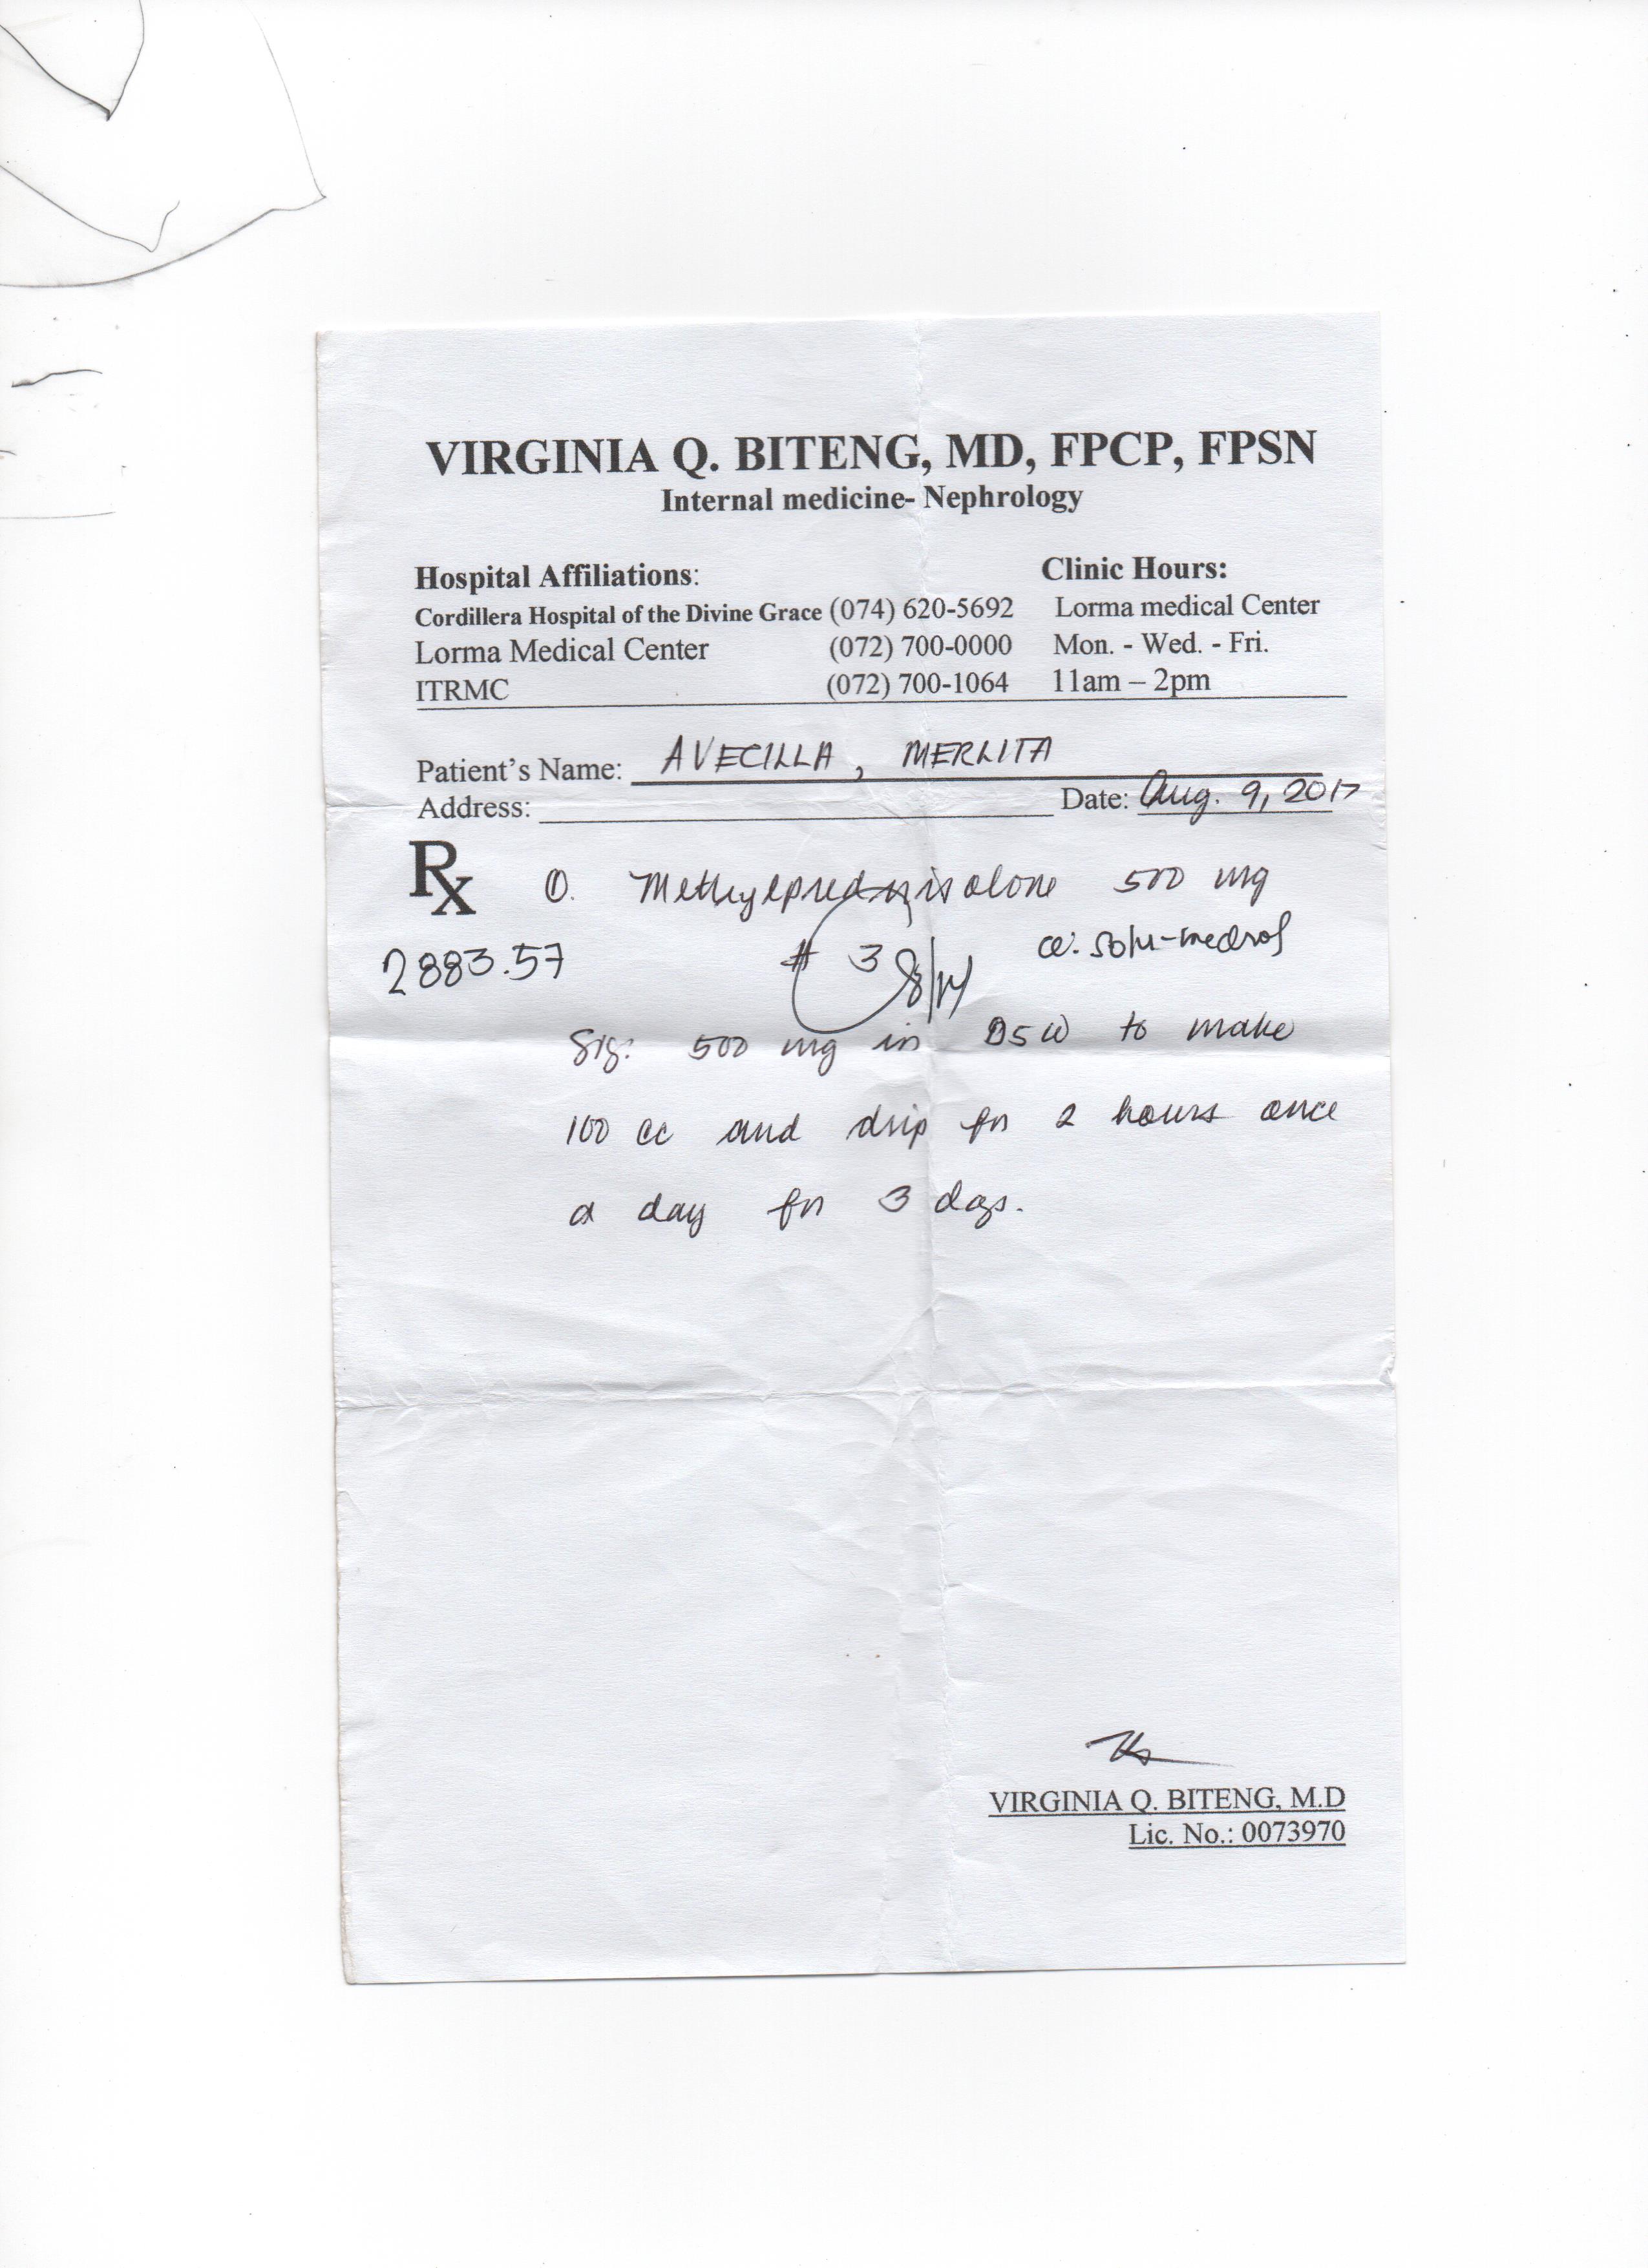 VIRGINIA Q. BITENG, MD, FPCP, FPSN
Internal medicine- Nephrology
Hospital Affiliations: Clinic Hours:
Cordillera Hospital of the Divine Grace (074) 620-5692 Lorma medical Center
Lorma Medical Center (072) 700-0000 Mon. - Wed. - Fri.
ITRMC (072) 700-1064 11am – 2pm
Patient's Name: AVECILLA, MERLITA
Address: Date: Aug. 9, 2017
Rx ①. Methylprednisolone 500 mg
2883.57 # 3 solu-medrol
Sig: 500 mg in D5W to make
100 cc and drip for 2 hours once
a day for 3 days.
VIRGINIA Q. BITENG, M.D
Lic. No.: 0073970